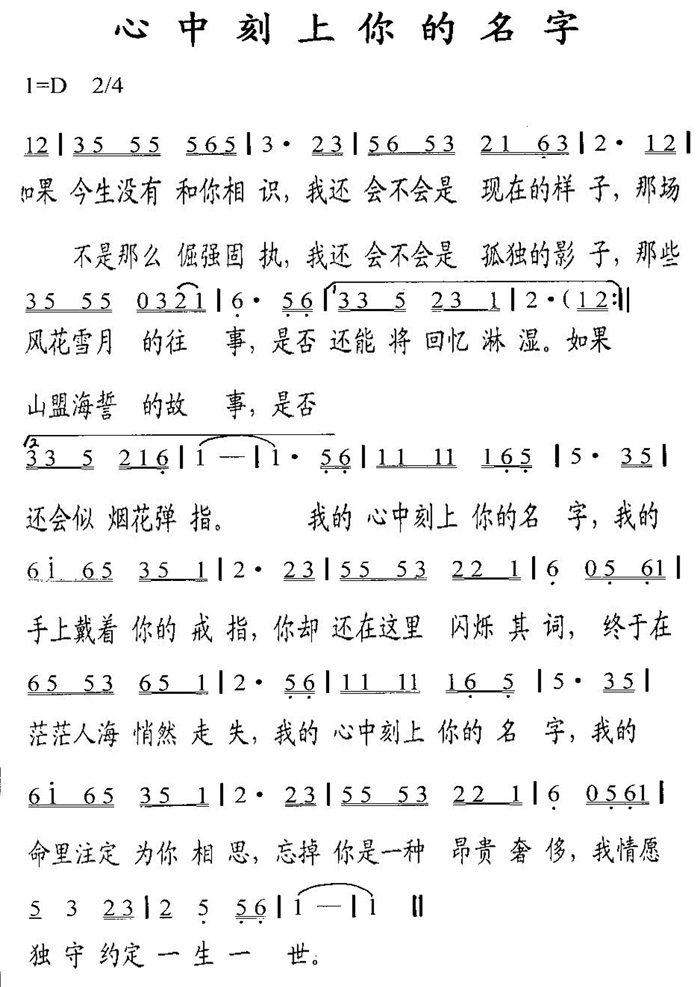 心中刻上你的名字
1=D 2/4
12 | 35 55 565 | 3· 23 | 56 53 21 63 | 2· 12 |
如果 今生没有 和你相 识，我还 会不会是 现在的样 子，那场
不是那么 倔强固 执，我还 会不会是 孤独的影 子，那些
35 55 0321 | 6· 56 | 33 5 23 1 | 2·( 12 :||
风花雪月 的往 事，是否 还能 将 回忆 淋 湿。如果
山盟海誓 的故 事，是否
2
33 5 216 | 1 — | 1· 56 | 11 11 165 | 5· 35 |
还会似 烟花弹 指。 我的 心中刻上 你的名 字，我的
6i 65 35 1 | 2· 23 | 55 53 22 1 | 6 05 61 |
手上戴着 你的 戒 指，你却 还在这里 闪烁 其 词， 终于在
65 53 65 1 | 2· 56 | 11 11 16 5 | 5· 35 |
茫茫人海 悄然 走 失，我的 心中刻上 你的 名 字，我的
6i 65 35 1 | 2· 23 | 55 53 22 1 | 6 0561 |
命里注定 为你 相 思，忘掉 你是一种 昂贵 奢 侈，我情愿
5 3 23 | 2 5 56 | 1 — | 1 ||
独 守 约定 一 生 一 世。